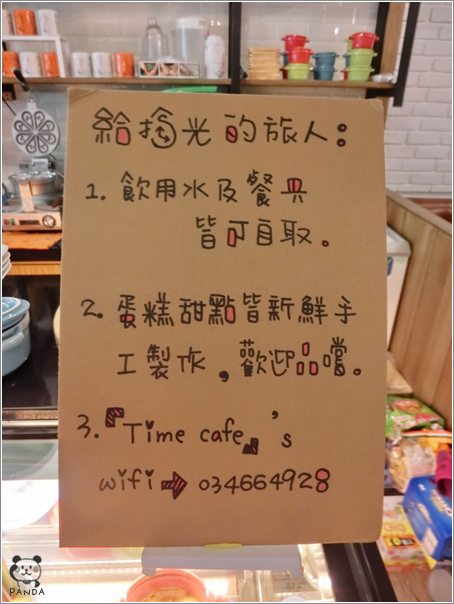 給搖光的旅人：
1. 飲用水及餐具
皆可自取。
2. 蛋糕甜點皆新鮮手
工製作，歡迎品嚐。
3.『Time cafe』's
wifi ➡ 034664928
PANDA